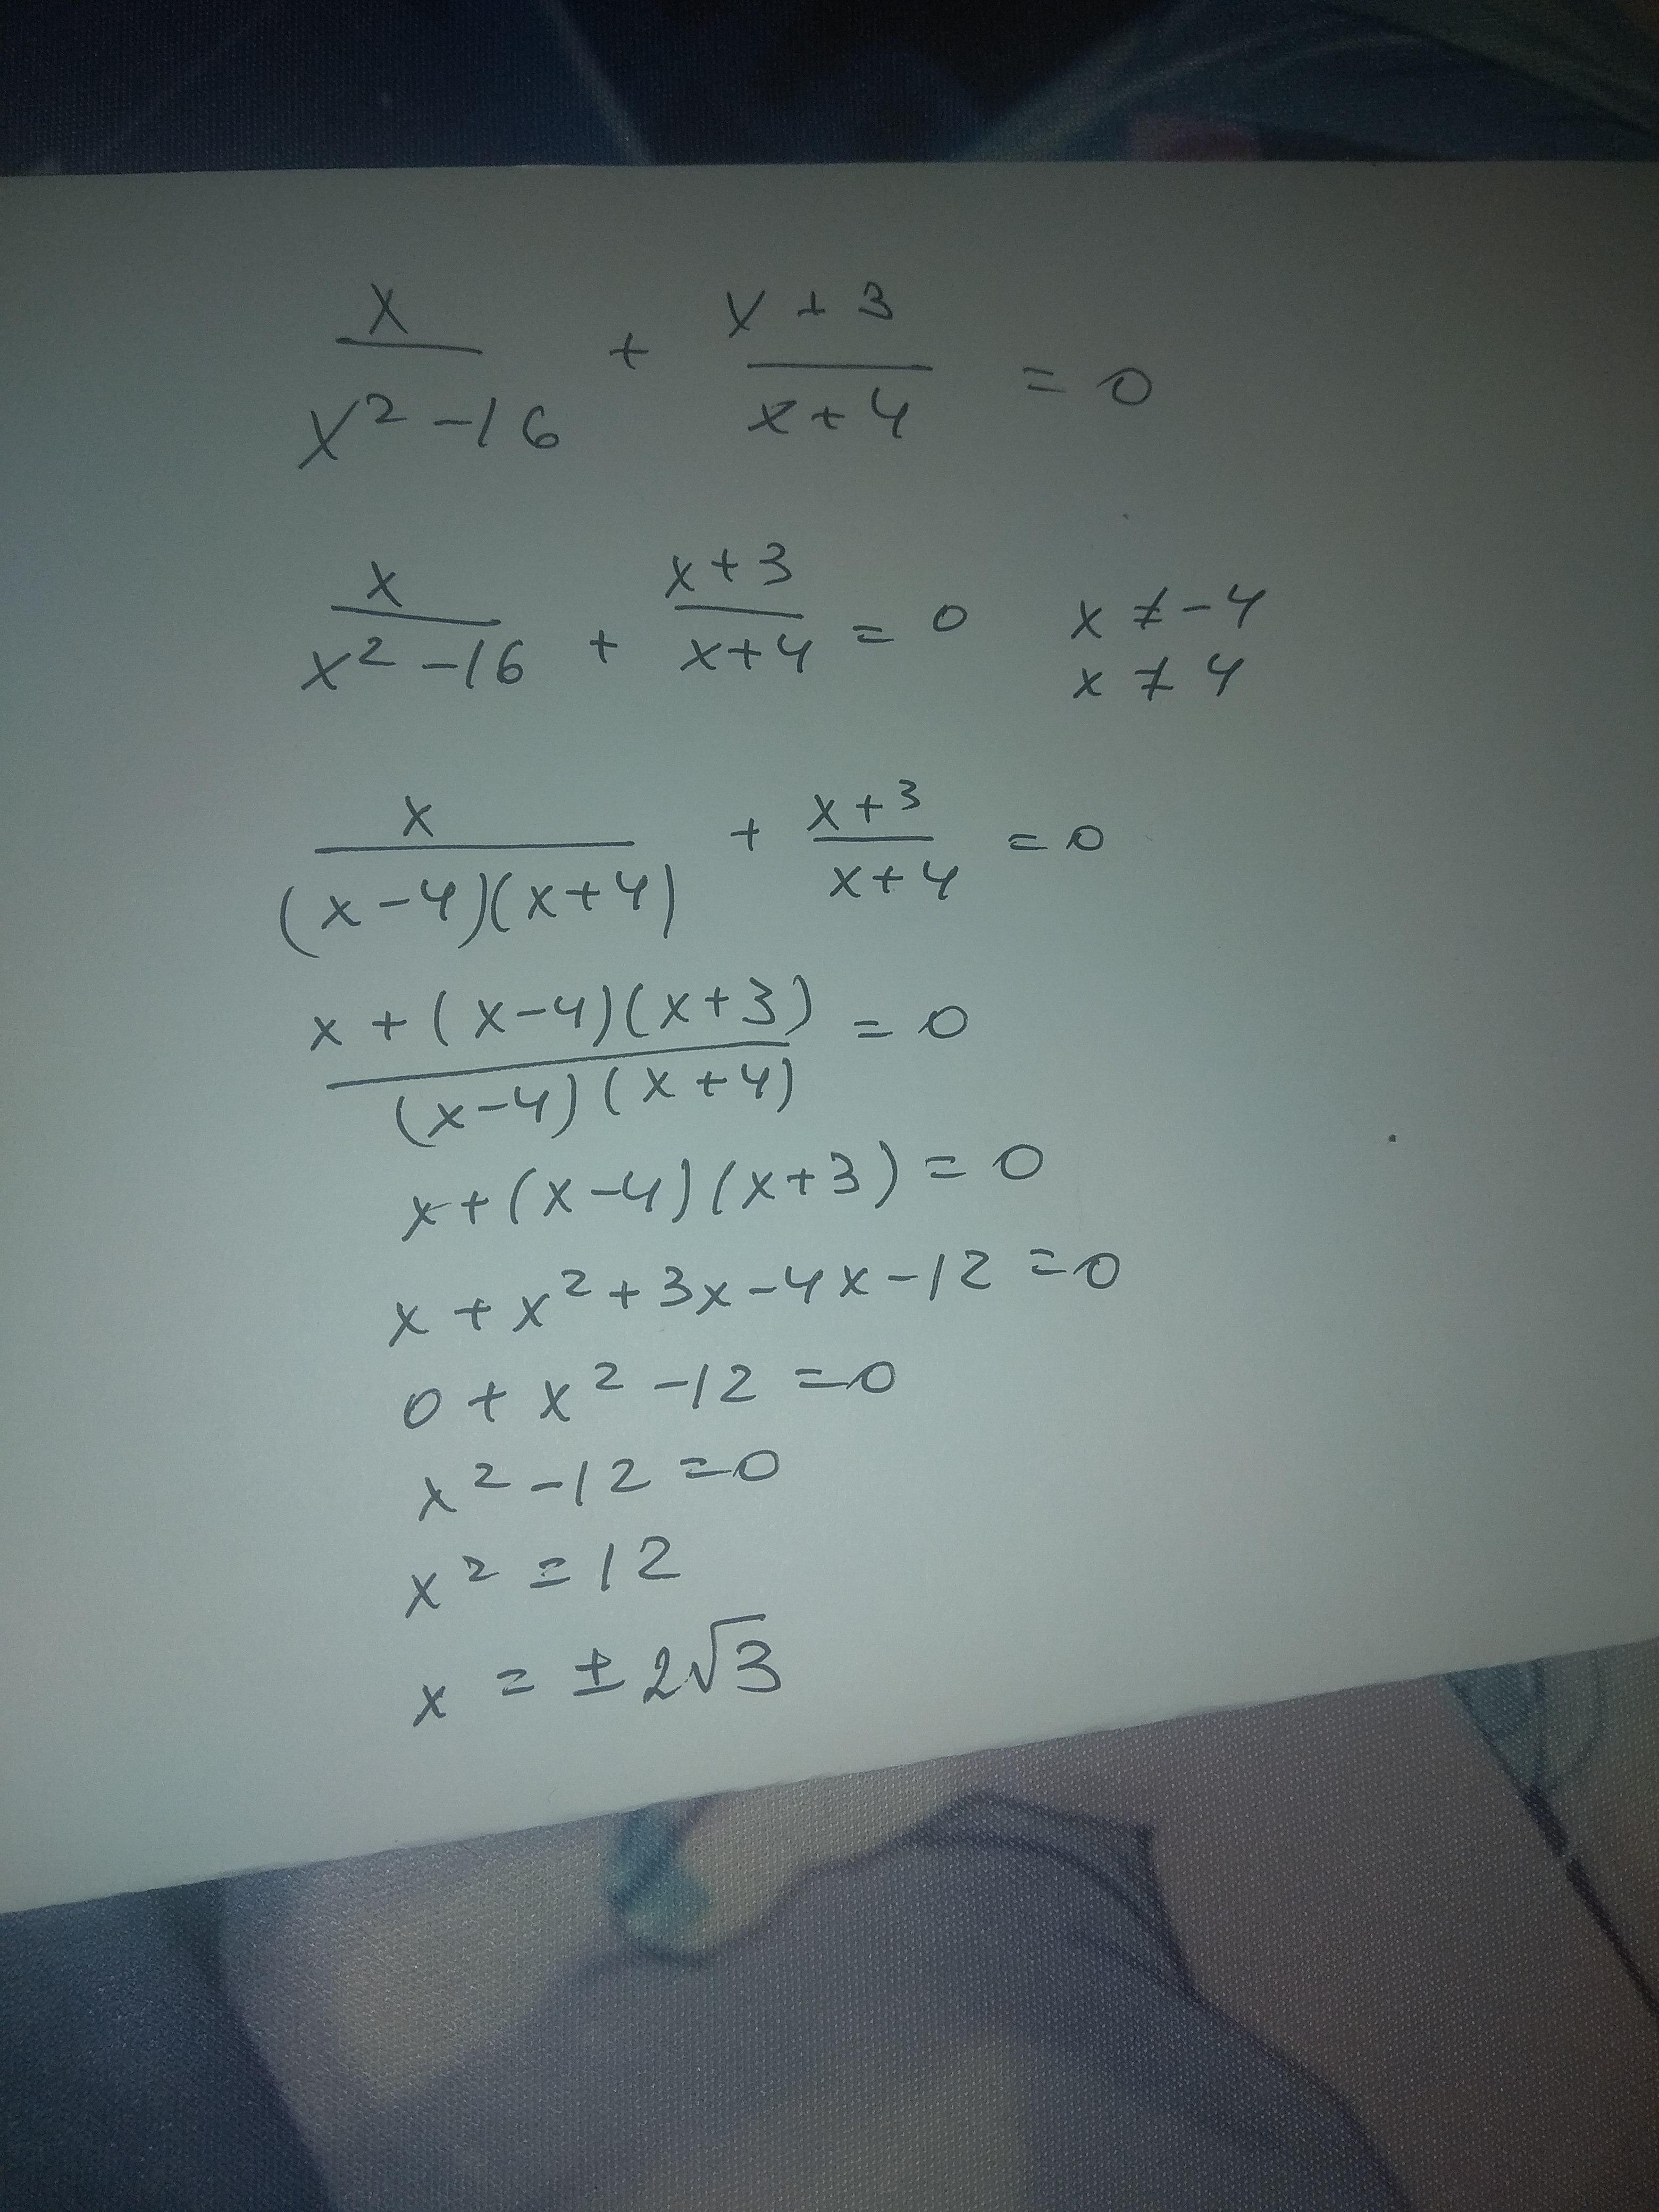 x/(x² - 16) + (x + 3)/(x + 4) = 0
x/(x² - 16) + (x + 3)/(x + 4) = 0   x ≠ -4
x ≠ 4
x/((x - 4)(x + 4)) + (x + 3)/(x + 4) = 0
(x + (x - 4)(x + 3))/((x - 4)(x + 4)) = 0
x + (x - 4)(x + 3) = 0
x + x² + 3x - 4x - 12 = 0
0 + x² - 12 = 0
x² - 12 = 0
x² = 12
x = ± 2√3